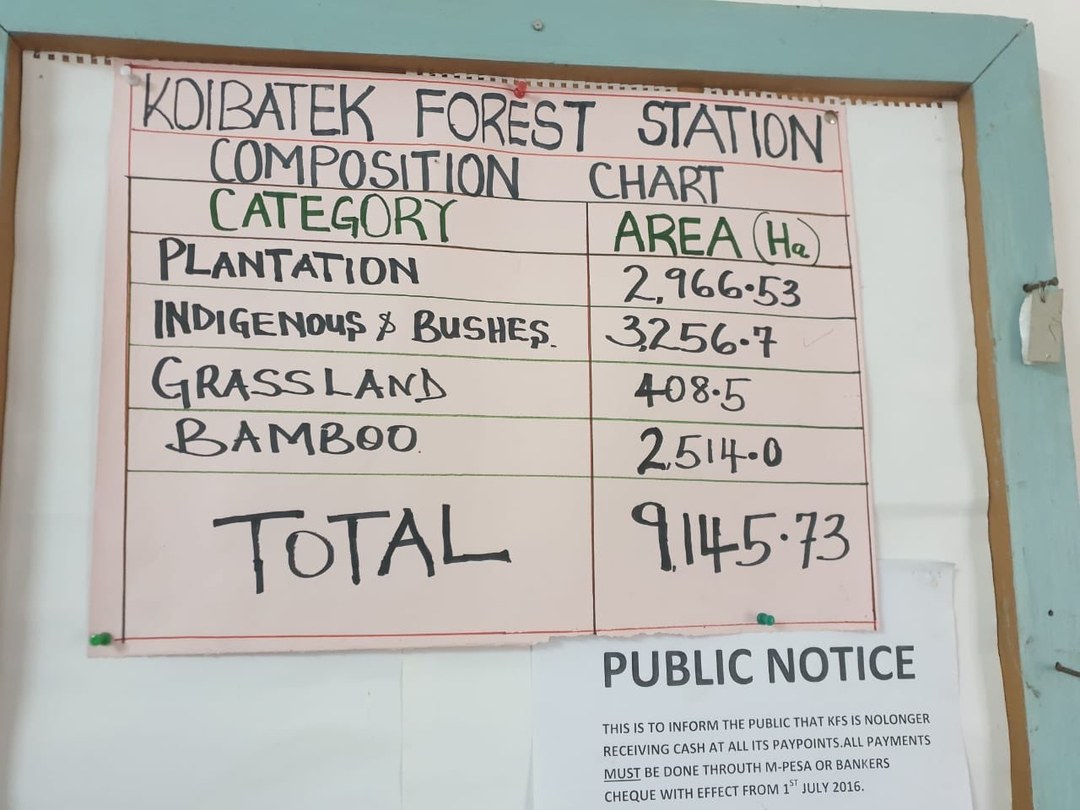 KOIBATEK FOREST STATION
COMPOSITION CHART
CATEGORY AREA (Ha)
PLANTATION 2,966.53
INDIGENOUS & BUSHES. 3,256.7
GRASSLAND 408.5
BAMBOO. 2,514.0
TOTAL 9,145.73
PUBLIC NOTICE
THIS IS TO INFORM THE PUBLIC THAT KFS IS NOLONGER
RECEIVING CASH AT ALL ITS PAYPOINTS.ALL PAYMENTS
MUST BE DONE THROUTH M-PESA OR BANKERS
CHEQUE WITH EFFECT FROM 1ST JULY 2016.